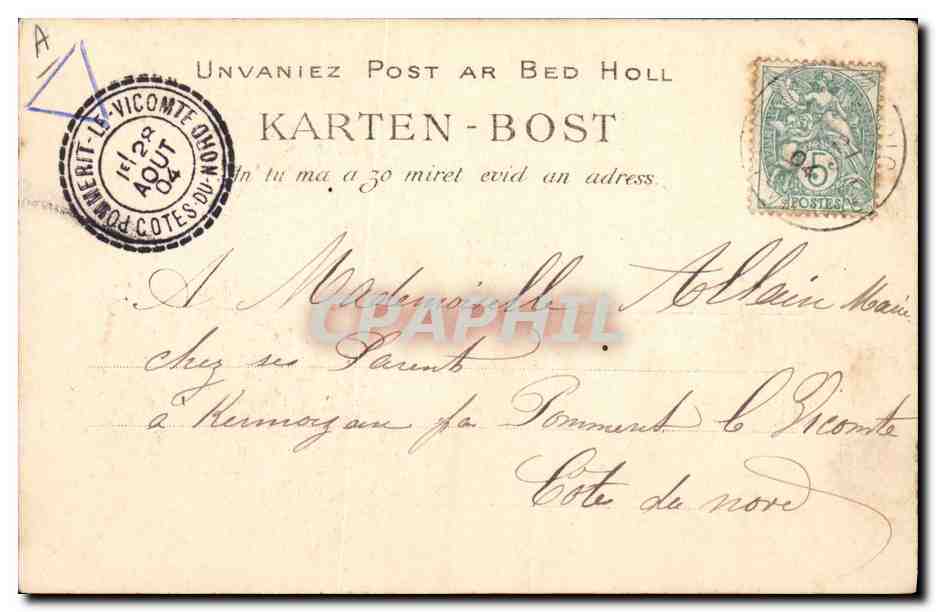 A
UNVANIEZ POST AR BED HOLL
KARTEN-BOST
'n tu ma a zo miret evid an adress.
POMMERIT-LE-VICOMTE
1E/ 28
AOUT
04
COTES-DU-NORD
5c
POSTES
04
A Mademoiselle Allain Marie
chez ses Parent
à Kermoizan par Pommerit le Vicomte
Côtes du nord
CPAPHIL